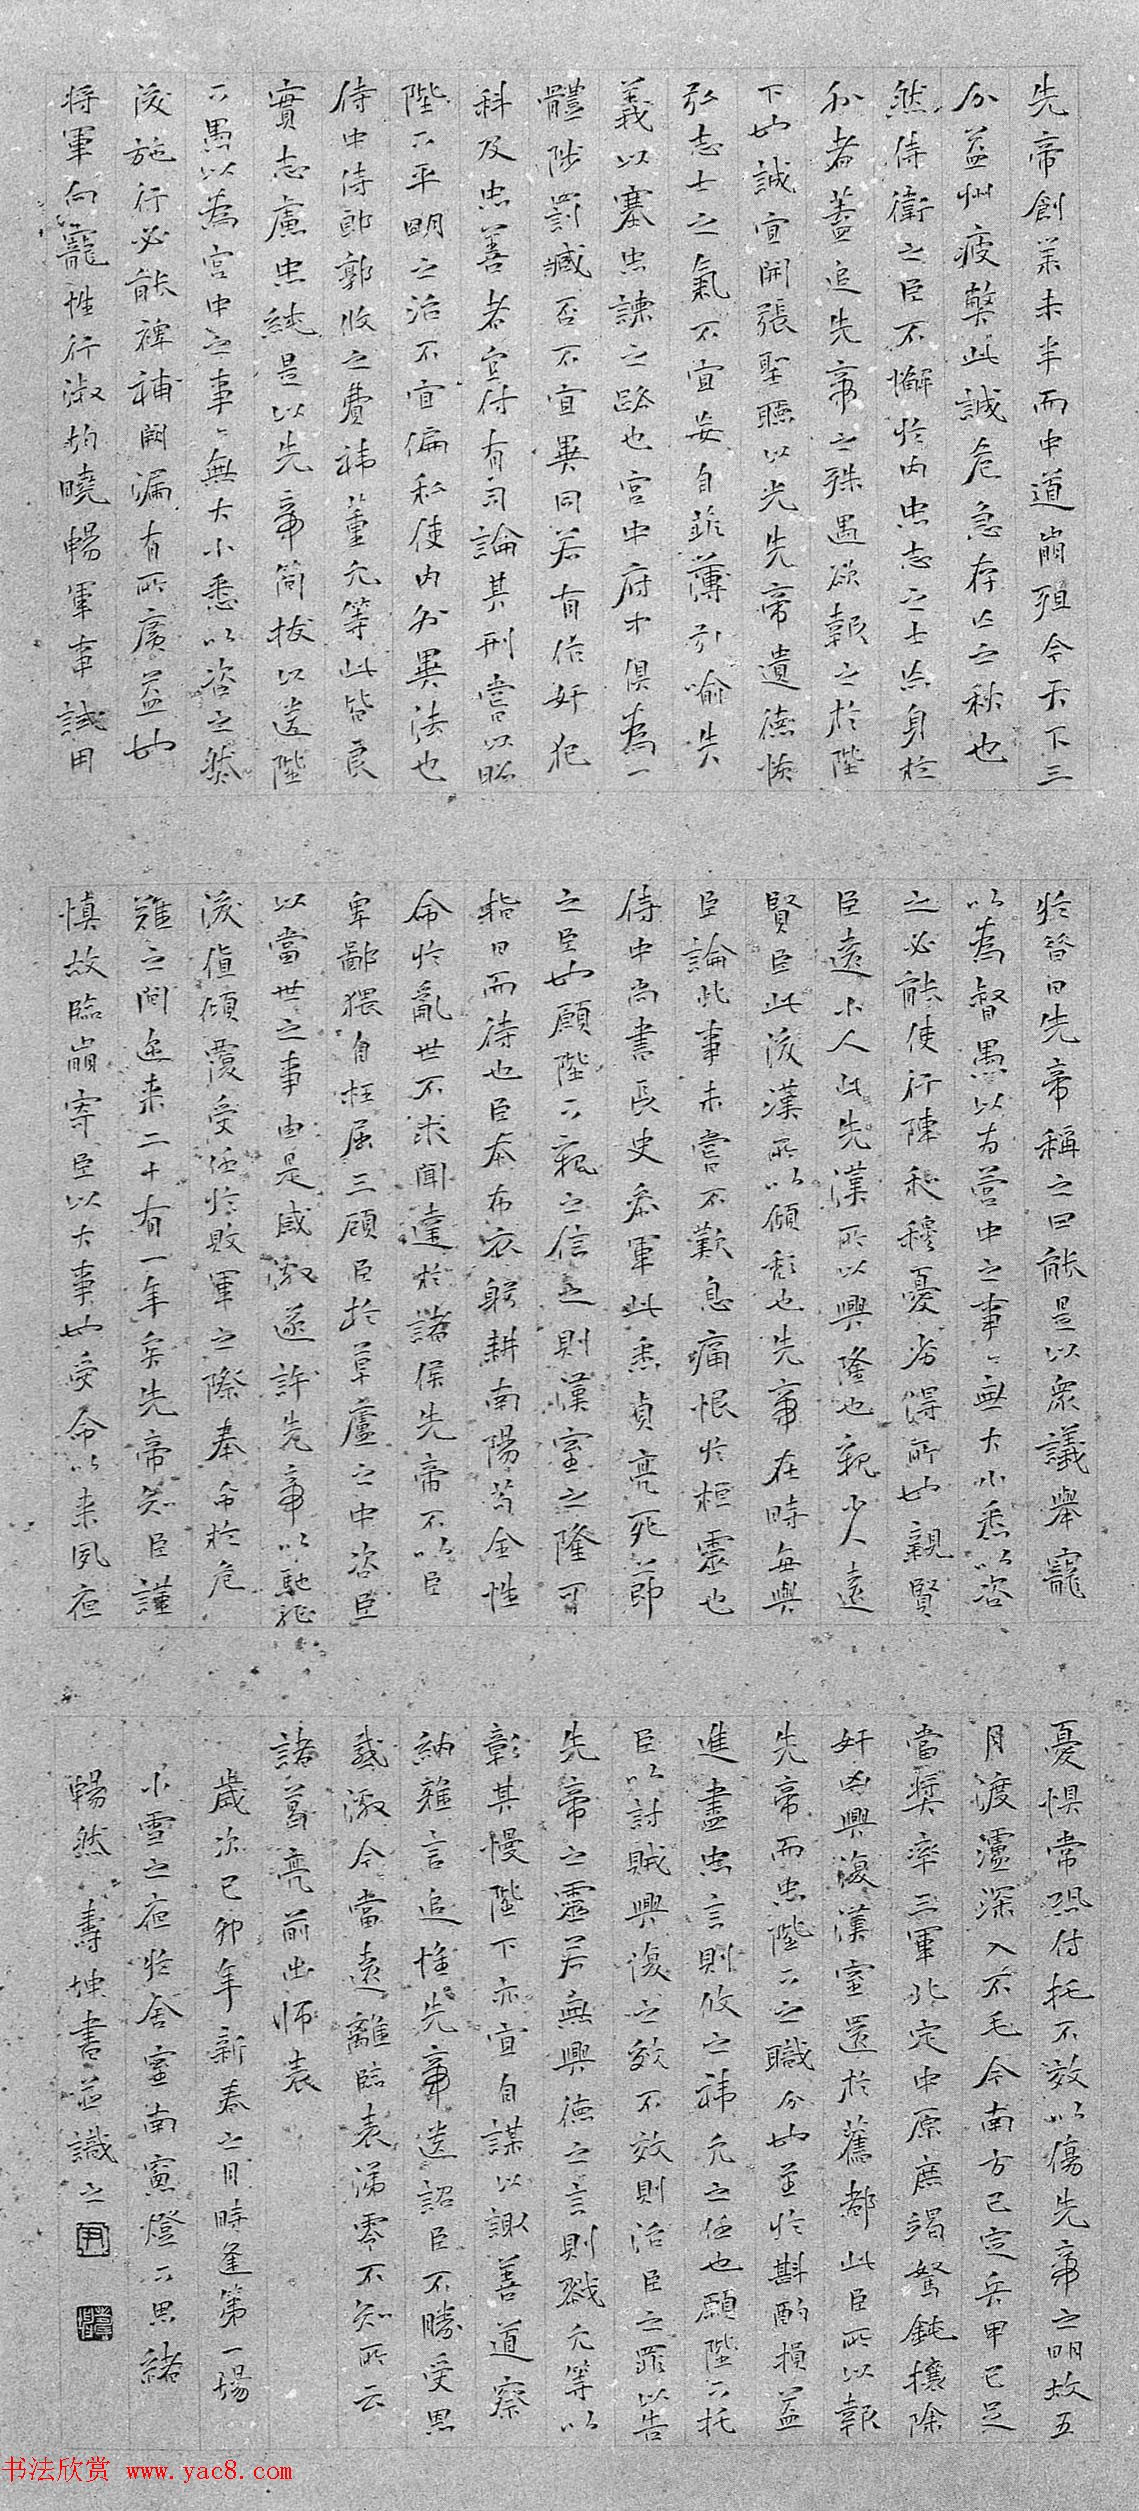 先帝創業未半而中道崩殂今天下三
分益州疲弊此誠危急存亡之秋也
然侍衛之臣不懈於內忠志之士忘身於
外者蓋追先帝之殊遇欲報之於陛
下也誠宜開張聖聽以光先帝遺德恢
弘志士之氣不宜妄自菲薄引喻失
義以塞忠諫之路也宮中府中俱為一
體陟罰臧否不宜異同若有作奸犯
科及忠善者宜付有司論其刑賞以昭
陛下平明之治不宜偏私使內外異法也
侍中侍郎郭攸之費禕董允等此皆良
實志慮忠純是以先帝簡拔以遺陛
下愚以為宮中之事々無大小悉以咨之然
後施行必能裨補闕漏有所廣益也
將軍向寵性行淑均曉暢軍事試用
於昔日先帝稱之曰能是以眾議舉寵
以為督愚以為營中之事々無大小悉以咨
之必能使行陳和穆優劣得所也親賢
臣遠小人此先漢所以興隆也親小人遠
賢臣此後漢所以傾頹也先帝在時每與
臣論此事未嘗不歎息痛恨於桓靈也
侍中尚書長史參軍此悉貞亮死節
之臣也願陛下親之信之則漢室之隆可
指日而待也臣本布衣躬耕南陽苟全性
命於亂世不求聞達於諸侯先帝不以臣
卑鄙猥自枉屈三顧臣於草廬之中咨臣
以當世之事由是感激遂許先帝以馳驅
後值傾覆受任於敗軍之際奉命於危
難之間爾來二十有一年矣先帝知臣謹
慎故臨崩寄臣以大事也受命以來夙夜
憂懼常恐付托不效以傷先帝之明故五
月渡瀘深入不毛今南方已定兵甲已足
當獎率三軍北定中原庶竭駑鈍攘除
奸凶興復漢室還於舊都此臣所以報
先帝而忠陛下之職分也至於斟酌損益
進盡忠言則攸之禕允之任也願陛下托
臣以討賊興復之效不效則治臣之罪以告
先帝之靈若無興德之言則戮允等以
彰其慢陛下亦宜自謀以諏善道察
納雅言追惟先帝遺詔臣不勝受恩
感激今當遠離臨表涕零不知所云
諸葛亮前出師表
歲次己卯年新春之月時逢第一場
小雪之夜於舍室南窗燈下思緒
暢然 壽坤書並識之
书法欣赏 www.yac8.com